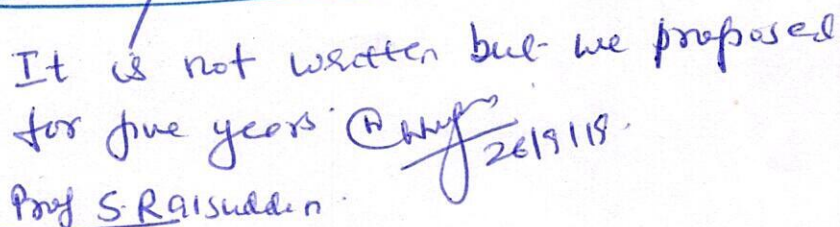 It is not written but we proposed
for five years. 26/9/18.
Prof S. Raisuddin.